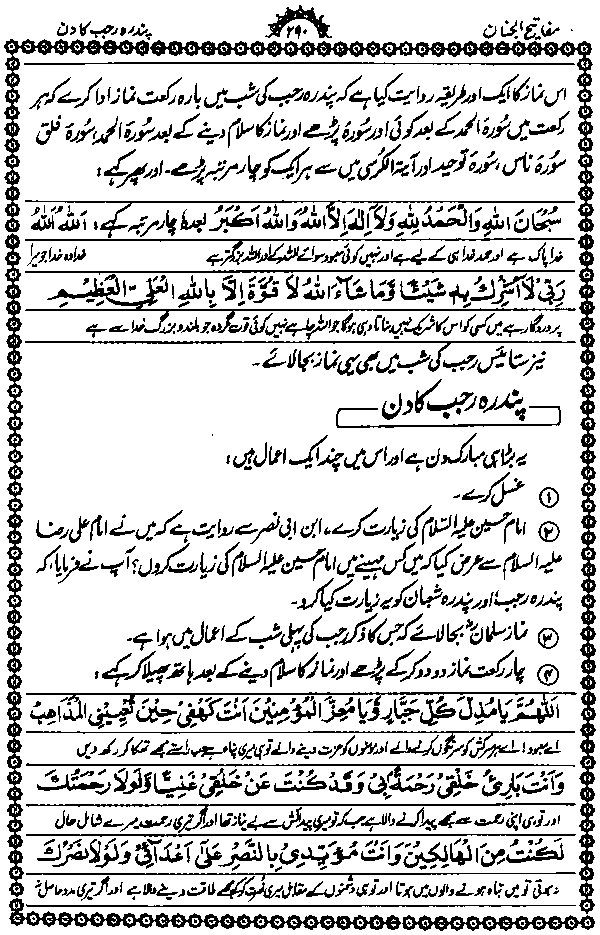 مفاتیح الجنان
۲۹۰
پندرہ رجب کا دن
اس نماز کا ایک اور طریقہ روایت کیا ہے کہ پندرہ رجب کی شب میں بارہ رکعت نماز ادا کرے کہ ہر
رکعت میں سورۂ الحمد کے بعد کوئی اور سورۂ پڑھے اور نماز کا سلام دینے کے بعد سورۂ الحمد، سورۂ فلق
سورۂ ناس، سورۂ توحید اور آیۃ الکرسی میں سے ہر ایک کو چار مرتبہ پڑھے۔ اور پھر کہے:
سُبْحَانَ اللهِ وَالْحَمْدُ لِلّٰهِ وَلَا اِلٰهَ اِلَّا اللهُ وَاللهُ اَكْبَرُ بعدۂ چار مرتبہ کہے: اَللهُ اَللهُ
خدا پاک ہے اور حمد خدا ہی کے لیے ہے اور نہیں کوئی معبود سوائے اللہ کے اور اللہ بزرگتر ہے خدا وہ خدا جو میرا
رَبِّيْ لَا اُشْرِكُ بِهٖ شَيْئًا وَّمَا شَاءَ اللهُ لَا قُوَّةَ اِلَّا بِاللهِ الْعَلِيِّ الْعَظِيْمِ
پروردگار ہے میں کسی کو اس کا شریک نہیں بناتا وہی ہوگا جو اللہ چاہے نہیں کوئی قوت مگر وہ جو بلند و بزرگ خدا سے ہے
نیز ستائیس رجب کی شب میں بھی یہی نماز بجا لائے۔
پندرہ رجب کا دن
یہ بڑا ہی مبارک دن ہے اور اس میں چند ایک اعمال ہیں:
① غسل کرے۔
② امام حسین علیہ السلام کی زیارت کرے، ابن ابی نصر سے روایت ہے کہ میں نے امام علی رضا
علیہ السلام سے عرض کیا کہ میں کس مہینے میں امام حسین علیہ السلام کی زیارت کروں؟ آپ نے فرمایا، کہ
پندرہ رجب اور پندرہ شعبان کو یہ زیارت کیا کرو۔
③ نماز سلمان بجا لائے کہ جس کا ذکر رجب کی پہلی شب کے اعمال میں ہوا ہے۔
④ چار رکعت نماز دو دو کر کے پڑھے اور نماز کا سلام دینے کے بعد ہاتھ پھیلا کر کہے:
اَللّٰهُمَّ يَا مُذِلَّ كُلِّ جَبَّارٍ وَّيَا مُعِزَّ الْمُؤْمِنِيْنَ اَنْتَ كَهْفِيْ حِيْنَ تُعْيِيْنِي الْمَذَاهِبُ
اے معبود! اے ہر سرکش کو سرنگوں کرنے والے اور مومنوں کو عزت دینے والے تو ہی میری پناہ ہے جب راستے مجھے تھکا کر رکھ دیں
وَاَنْتَ بَارِئُ خَلْقِيْ رَحْمَةً بِيْ وَقَدْ كُنْتَ عَنْ خَلْقِيْ غَنِيًّا وَّلَوْلَا رَحْمَتُكَ
اور تو ہی اپنی رحمت سے مجھے پیدا کرنے والا ہے جب کہ تو میری پیدائش سے بے نیاز تھا اور اگر تیری رحمت میرے شامل حال
لَكُنْتُ مِنَ الْهَالِكِيْنَ وَاَنْتَ مُؤَيِّدِيْ بِالنَّصْرِ عَلٰى اَعْدَآئِيْ وَلَوْلَا نَصْرُكَ
نہ ہوتی تو میں تباہ ہونے والوں میں ہوتا اور تو ہی دشمنوں کے مقابل میری نصرت کر کے مجھے طاقت دینے والا ہے اور اگر تیری مدد حاصل نہ